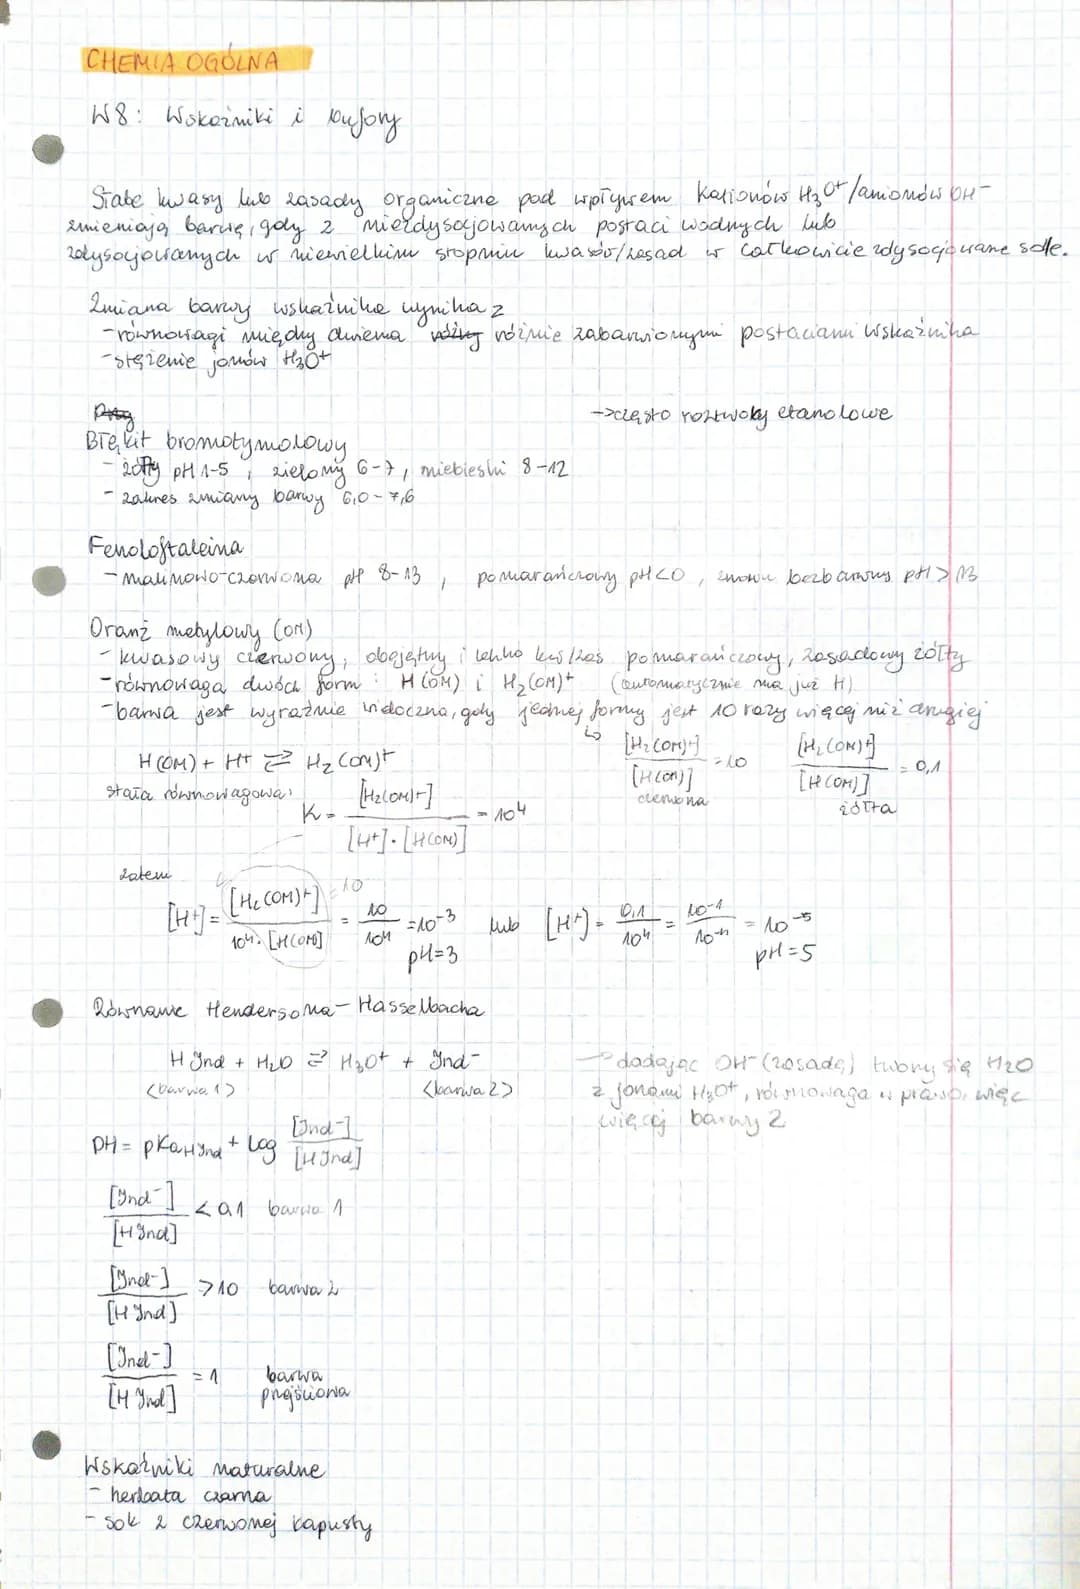 CHEMIA OGÓLNA
W8: Wskaźniki i bufory
Słabe kwasy lub zasady organiczne pod wpływem kationów H₃O⁺/anionów OH⁻
zmieniają barwę, gdy z niezdysocjowanych postaci wodnych lub
zdysocjowanych w niewielkim stopniu kwasów/zasad w całkowicie zdysocjowane sole.
Zmiana barwy wskaźnika wynika z
- równowagi między dwiema różnie zabarwionymi postaciami wskaźnika
- stężenie jonów H₃O⁺
-> często roztwory etanolowe
Błękit bromotymolowy
- żółty pH 1-5, zielony 6-7, niebieski 8-12
- zakres zmiany barwy 6,0-7,6
Fenoloftaleina
- malinowo-czerwona pH 8-13, pomarańczowy pH<0, znowu bezbarwny pH>13
Oranż metylowy (OM)
- kwasowy czerwony, obojętny i lekko kw/zas pomarańczowy, zasadowy żółty
- równowaga dwóch form: H(OM) i H₂(OM)⁺ (automatycznie ma już H)
- barwa jest wyraźnie widoczna, gdy jednej formy jest 10 razy więcej niż drugiej
↳ [H₂(OM)⁺] / [H(OM)] = 10 czerwona
[H₂(OM)⁺] / [H(OM)] = 0,1 żółta
H(OM) + H⁺ ⇌ H₂(OM)⁺
stała równowagowa:
K = [H₂(OM)⁺] / [H⁺]·[H(OM)] = 10⁴
zatem
[H⁺] = [H₂(OM)⁺] / 10⁴·[H(OM)] = 10 / 10⁴ = 10⁻³ lub [H⁺] = 0,1 / 10⁴ = 10⁻¹ / 10⁻⁴ = 10⁻⁵
=10
pH=3 pH=5
Równanie Hendersona-Hasselbacha
H Ind + H₂O ⇌ H₃O⁺ + Ind⁻
<barwa 1> <barwa 2>
-> dodając OH⁻ (zasadę) tworzy się H₂O
z jonami H₃O⁺, równowaga w prawo, więc
więcej barwy 2
pH = pKa HInd + log [Ind⁻] / [H Ind]
[Ind⁻] / [H Ind] < 0,1 barwa 1
[Ind⁻] / [H Ind] > 10 barwa 2
[Ind⁻] / [H Ind] = 1 barwa
przejściowa
Wskaźniki naturalne
- herbata czarna
- sok z czerwonej kapusty